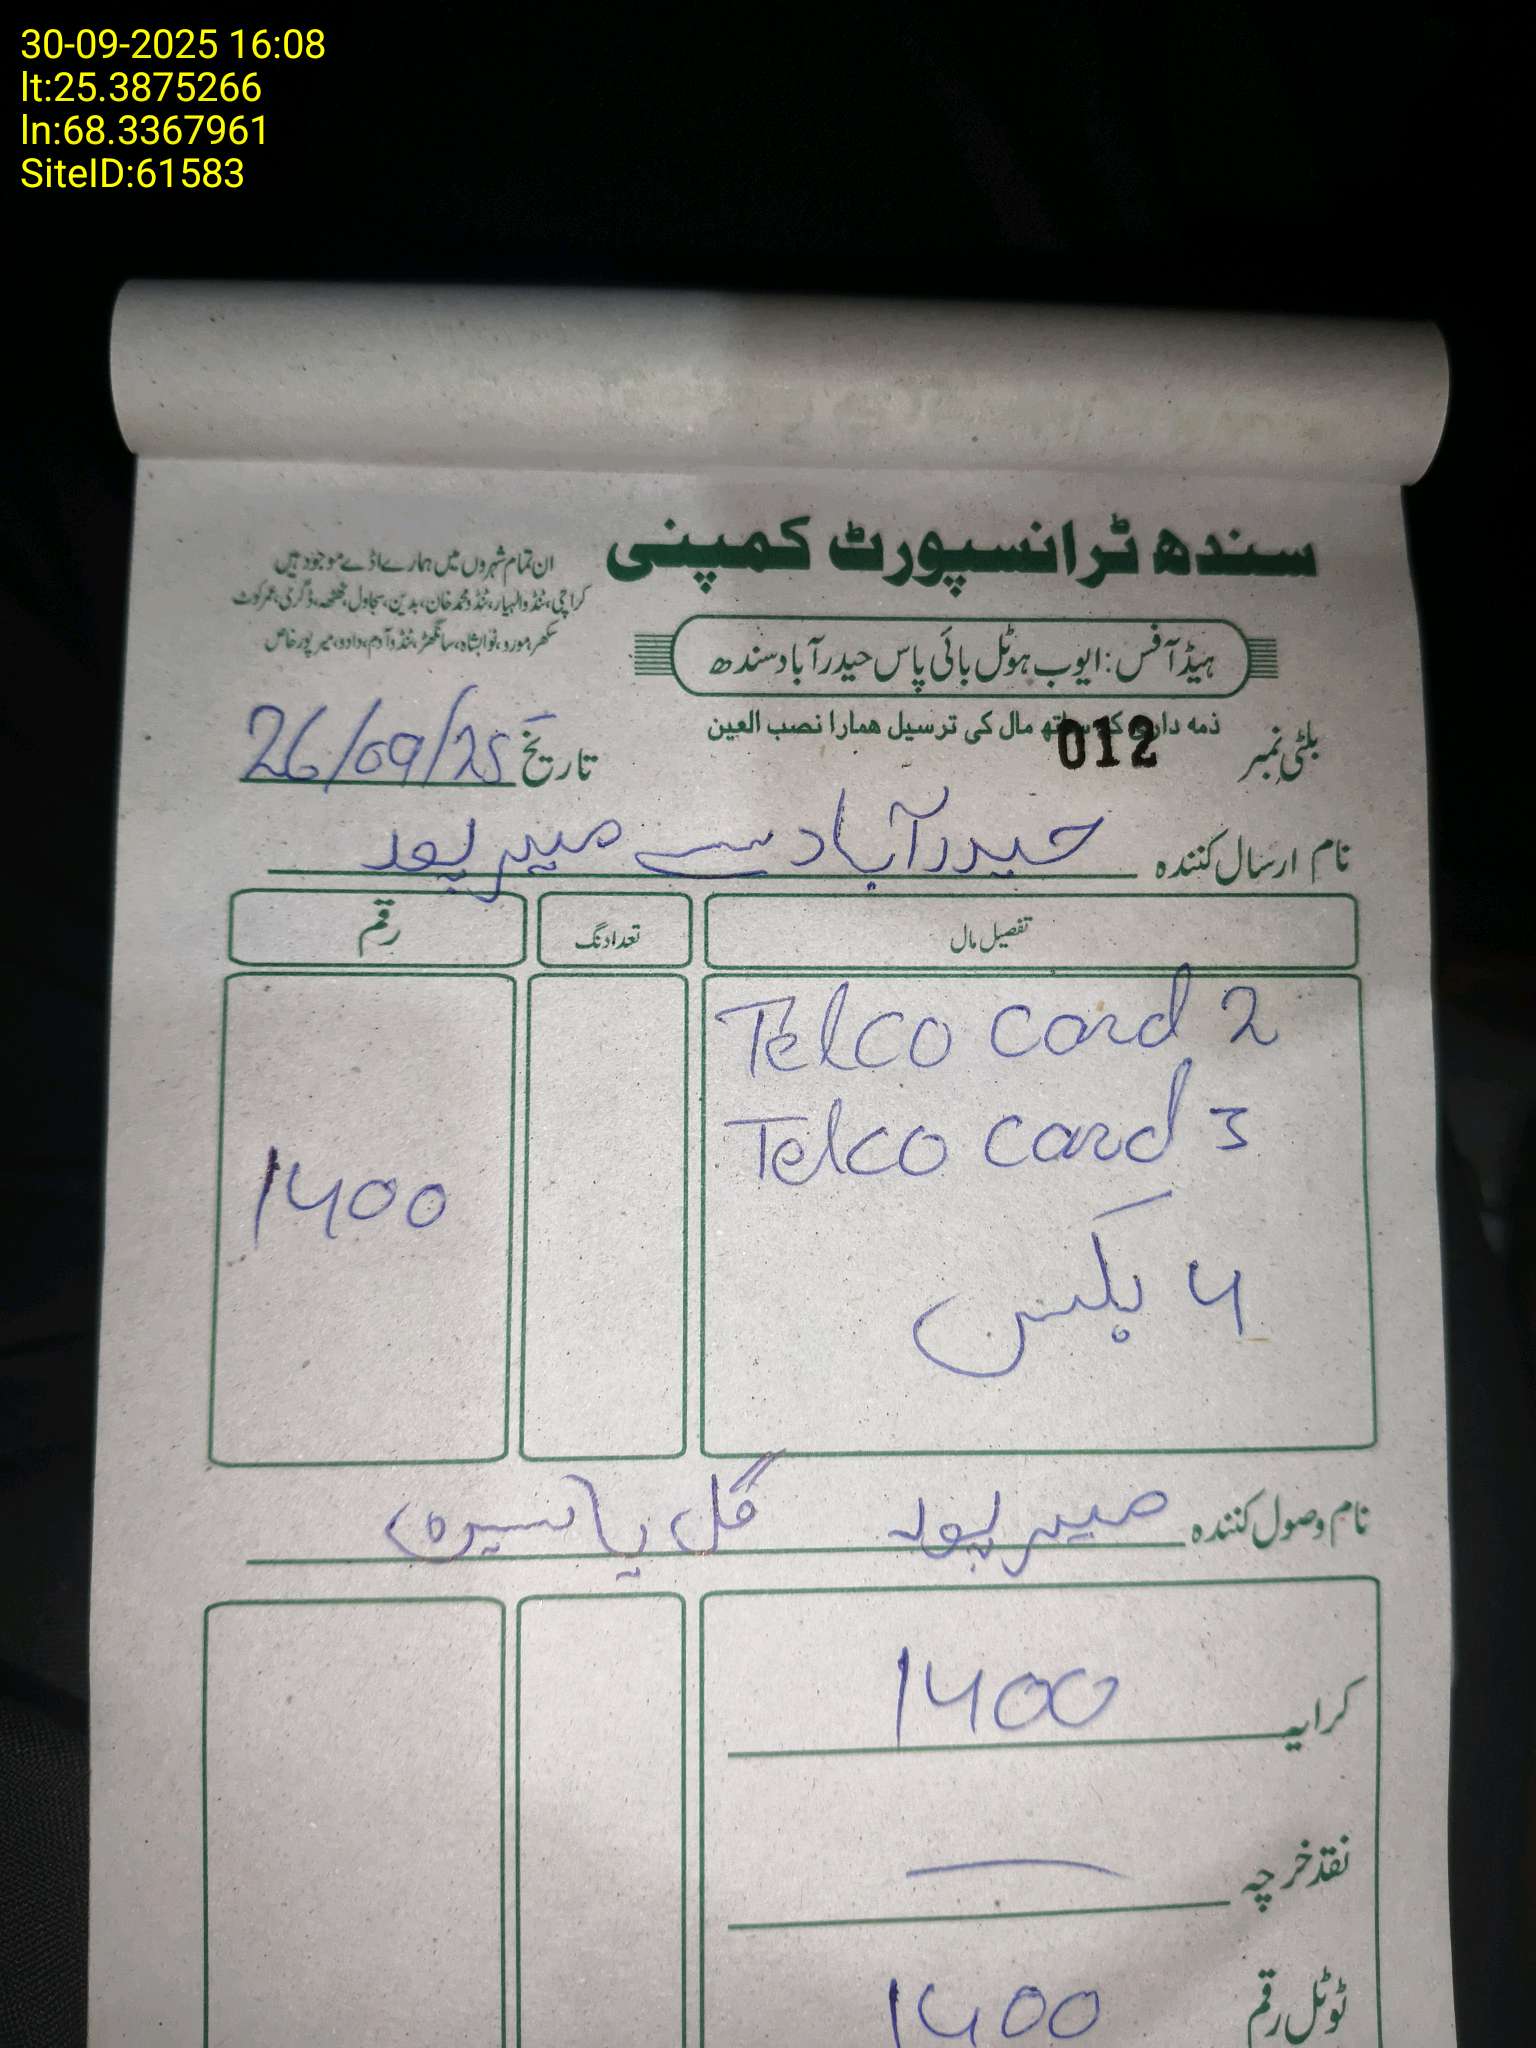 30-09-2025 16:08
lt:25.3875266
ln:68.3367961
SiteID:61583
سندھ ٹرانسپورٹ کمپنی
ان تمام شہروں میں ہمارے اڈے موجود ہیں
کراچی، ٹنڈوالہیار، ٹنڈو محمد خان، بدین، سجاول، ٹھٹھہ، ڈگری، عمرکوٹ
سکھر، مورو، نوابشاہ، سانگھڑ، ٹنڈوآدم، دادو، میرپورخاص
ہیڈ آفس: ایوب ہوٹل بائی پاس حیدرآباد سندھ
ذمہ داری کے ساتھ مال کی ترسیل ھمارا نصب العین
بلٹی نمبر 012
تاریخ 26/09/25
نام ارسال کنندہ حیدرآباد سے میرپور
تفصیل مال تعداد نگ رقم
Telco Card 2
Telco Card 3
4 بکس
1400
نام وصول کنندہ میرپور گل
کرایہ 1400
نقد خرچہ —
ٹوٹل رقم 1400